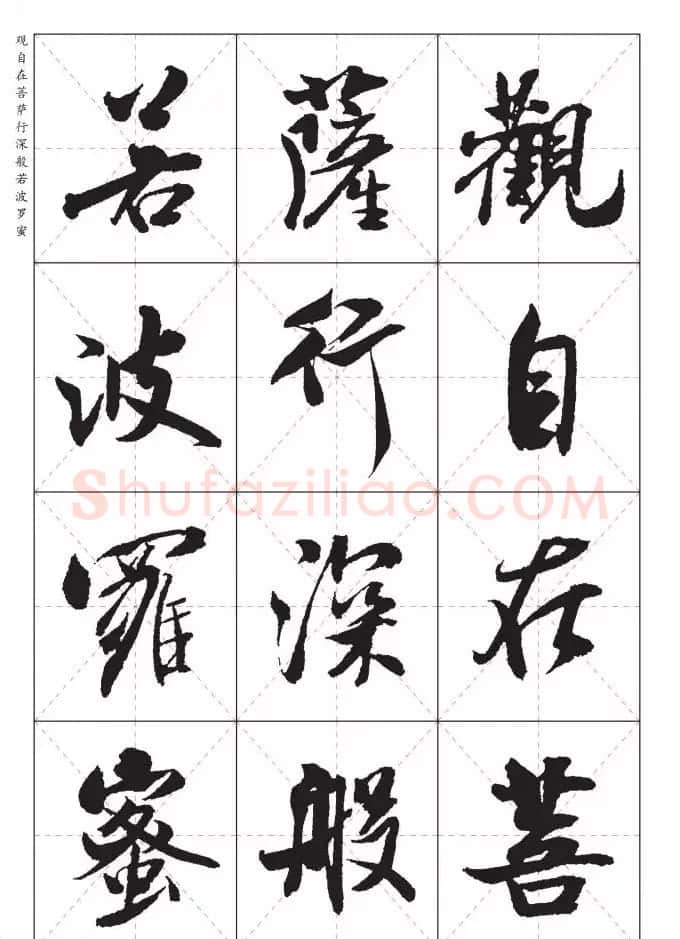 观自在菩萨行深般若波罗蜜
觀自在菩
薩行深般
若波羅蜜
Shufaziliao.COM